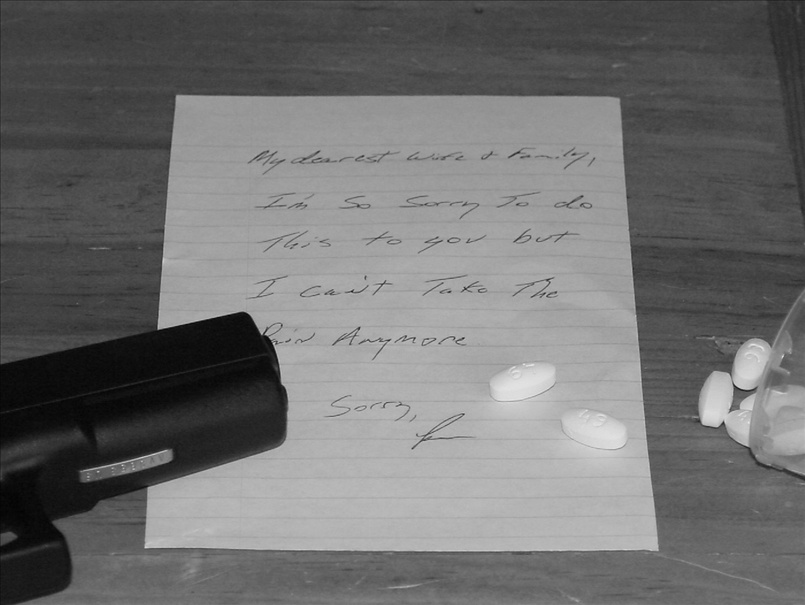 My dearest Wife & Family,
I'm So Sorry To do
This to you but
I can't Take The
Pain Anymore
Sorry,